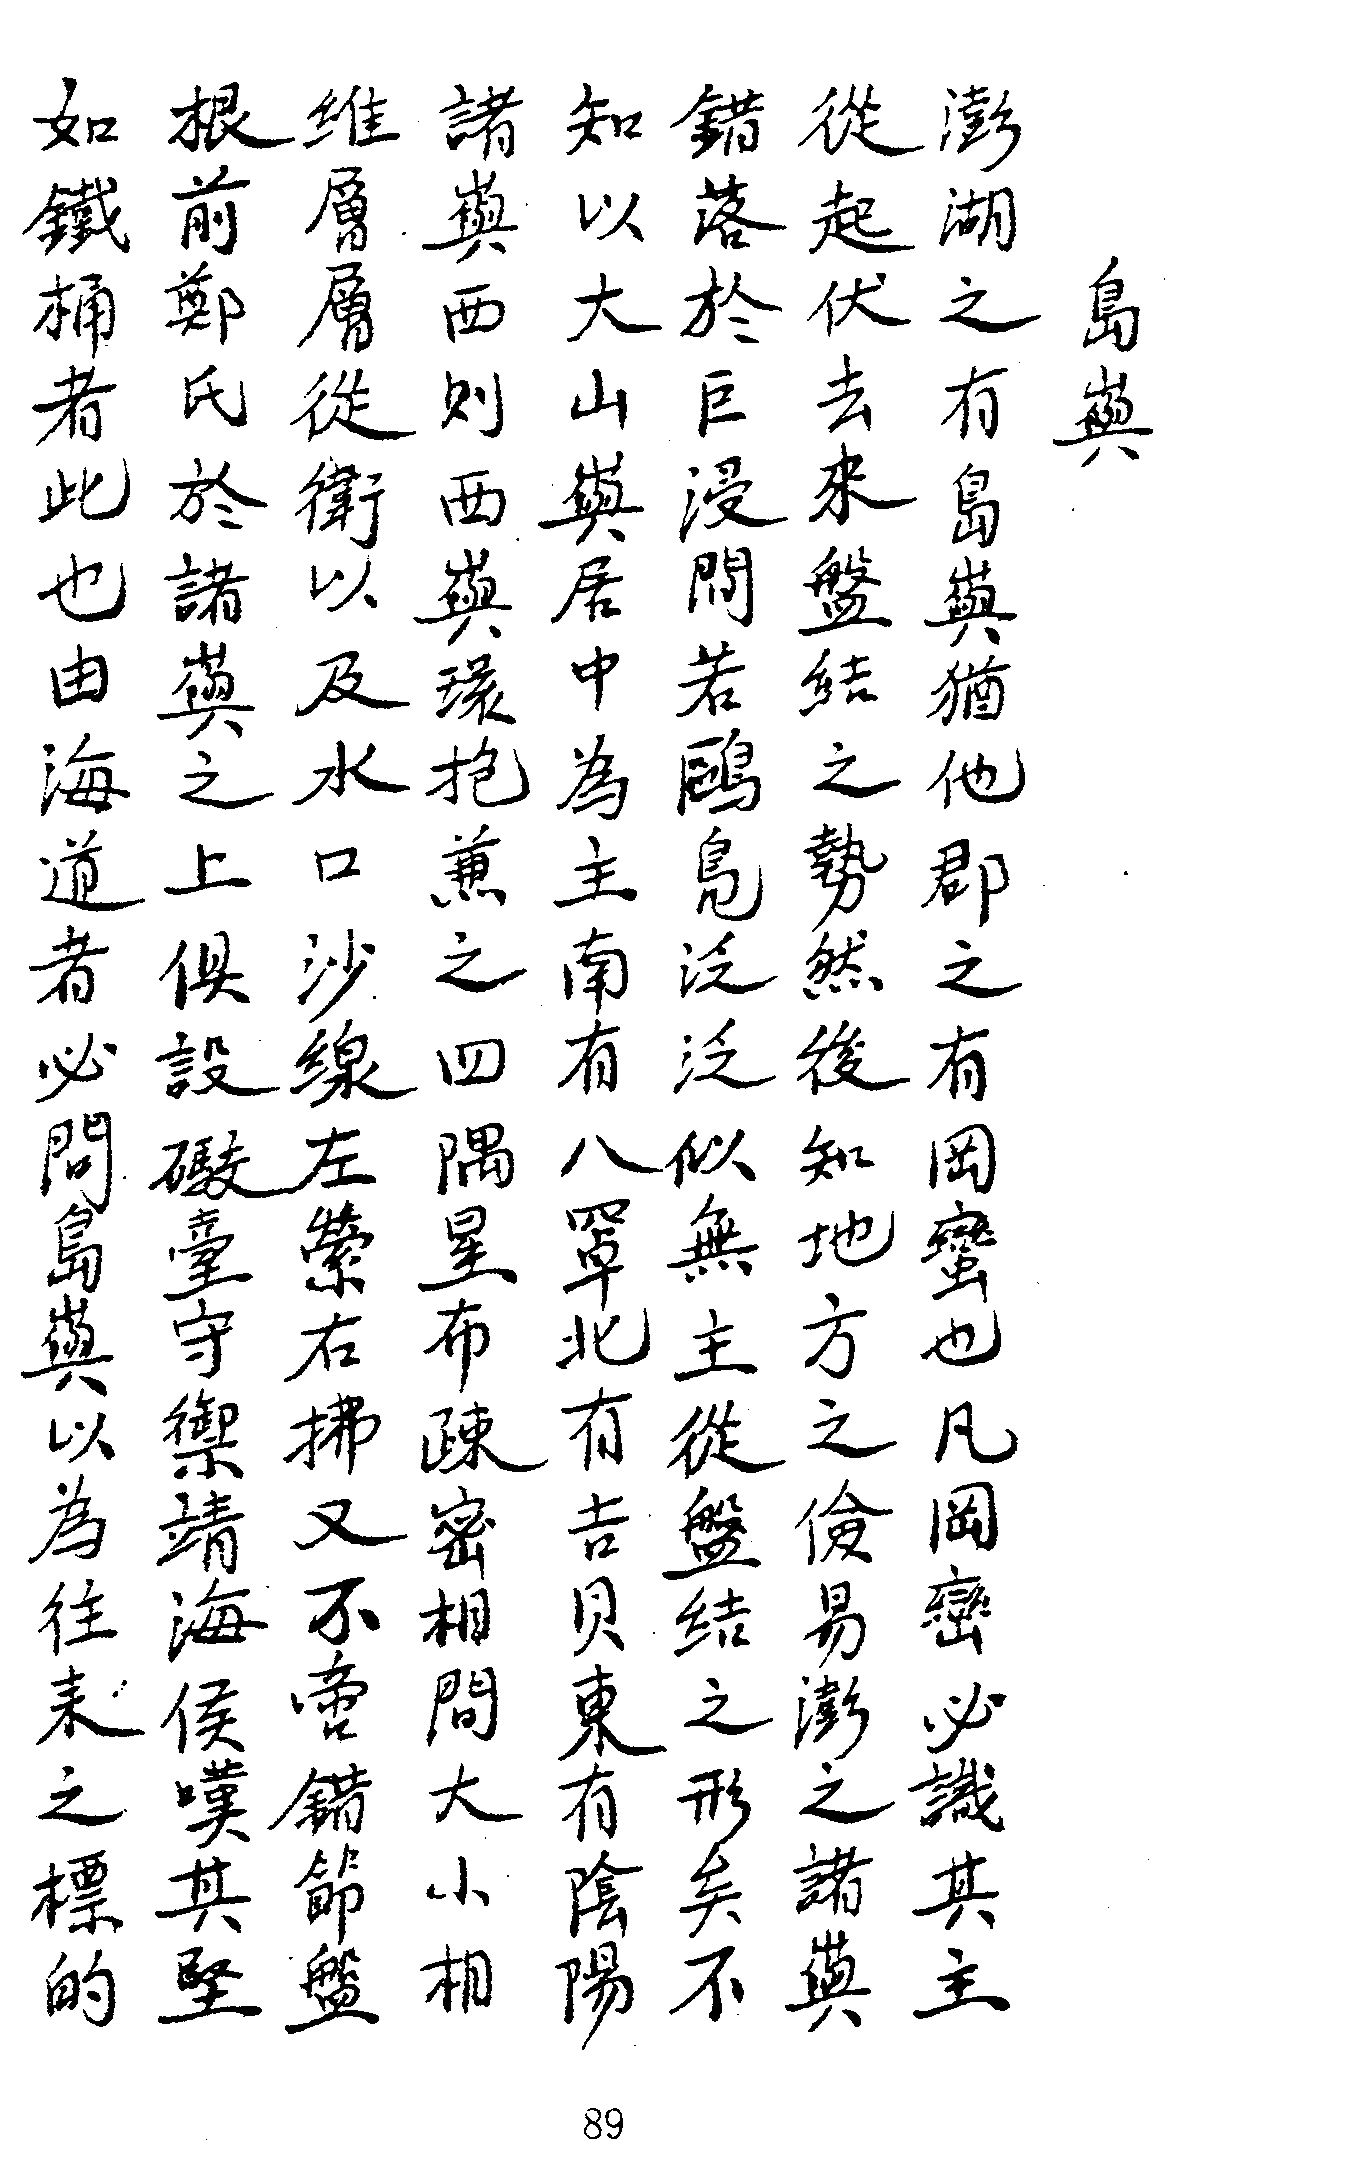 島嶼
澎湖之有島嶼猶他郡之有岡蠻也凡岡巒必識其主
從起伏去來盤結之勢然後知地方之儉易澎之諸嶼
錯落於巨浸間若鷗鳧泛泛似無主從盤結之形矣不
知以大山嶼居中為主南有八罩北有吉貝東有陰陽
諸嶼西則西嶼環抱兼之四隅星布疎密相間大小相
維層層從衛以及水口沙線左縈右拂又不啻錯節盤
根前鄭氏於諸嶼之上俱設礮臺守禦靖海侯嘆其堅
如鐵桶者此也由海道者必問島嶼以為往来之標的
89